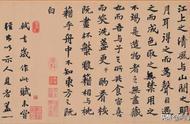 江上之清風與山間之明
月耳得之而為聲目遇
之而成色取之無禁用之
不竭是造物者之無盡
藏也而吾與子之所共食客喜
而笑洗盞更酌肴核
既盡杯盤狼籍相與枕
籍乎舟中不知東方既
白
軾去歲作此賦未嘗
輕出以示人見者盖一